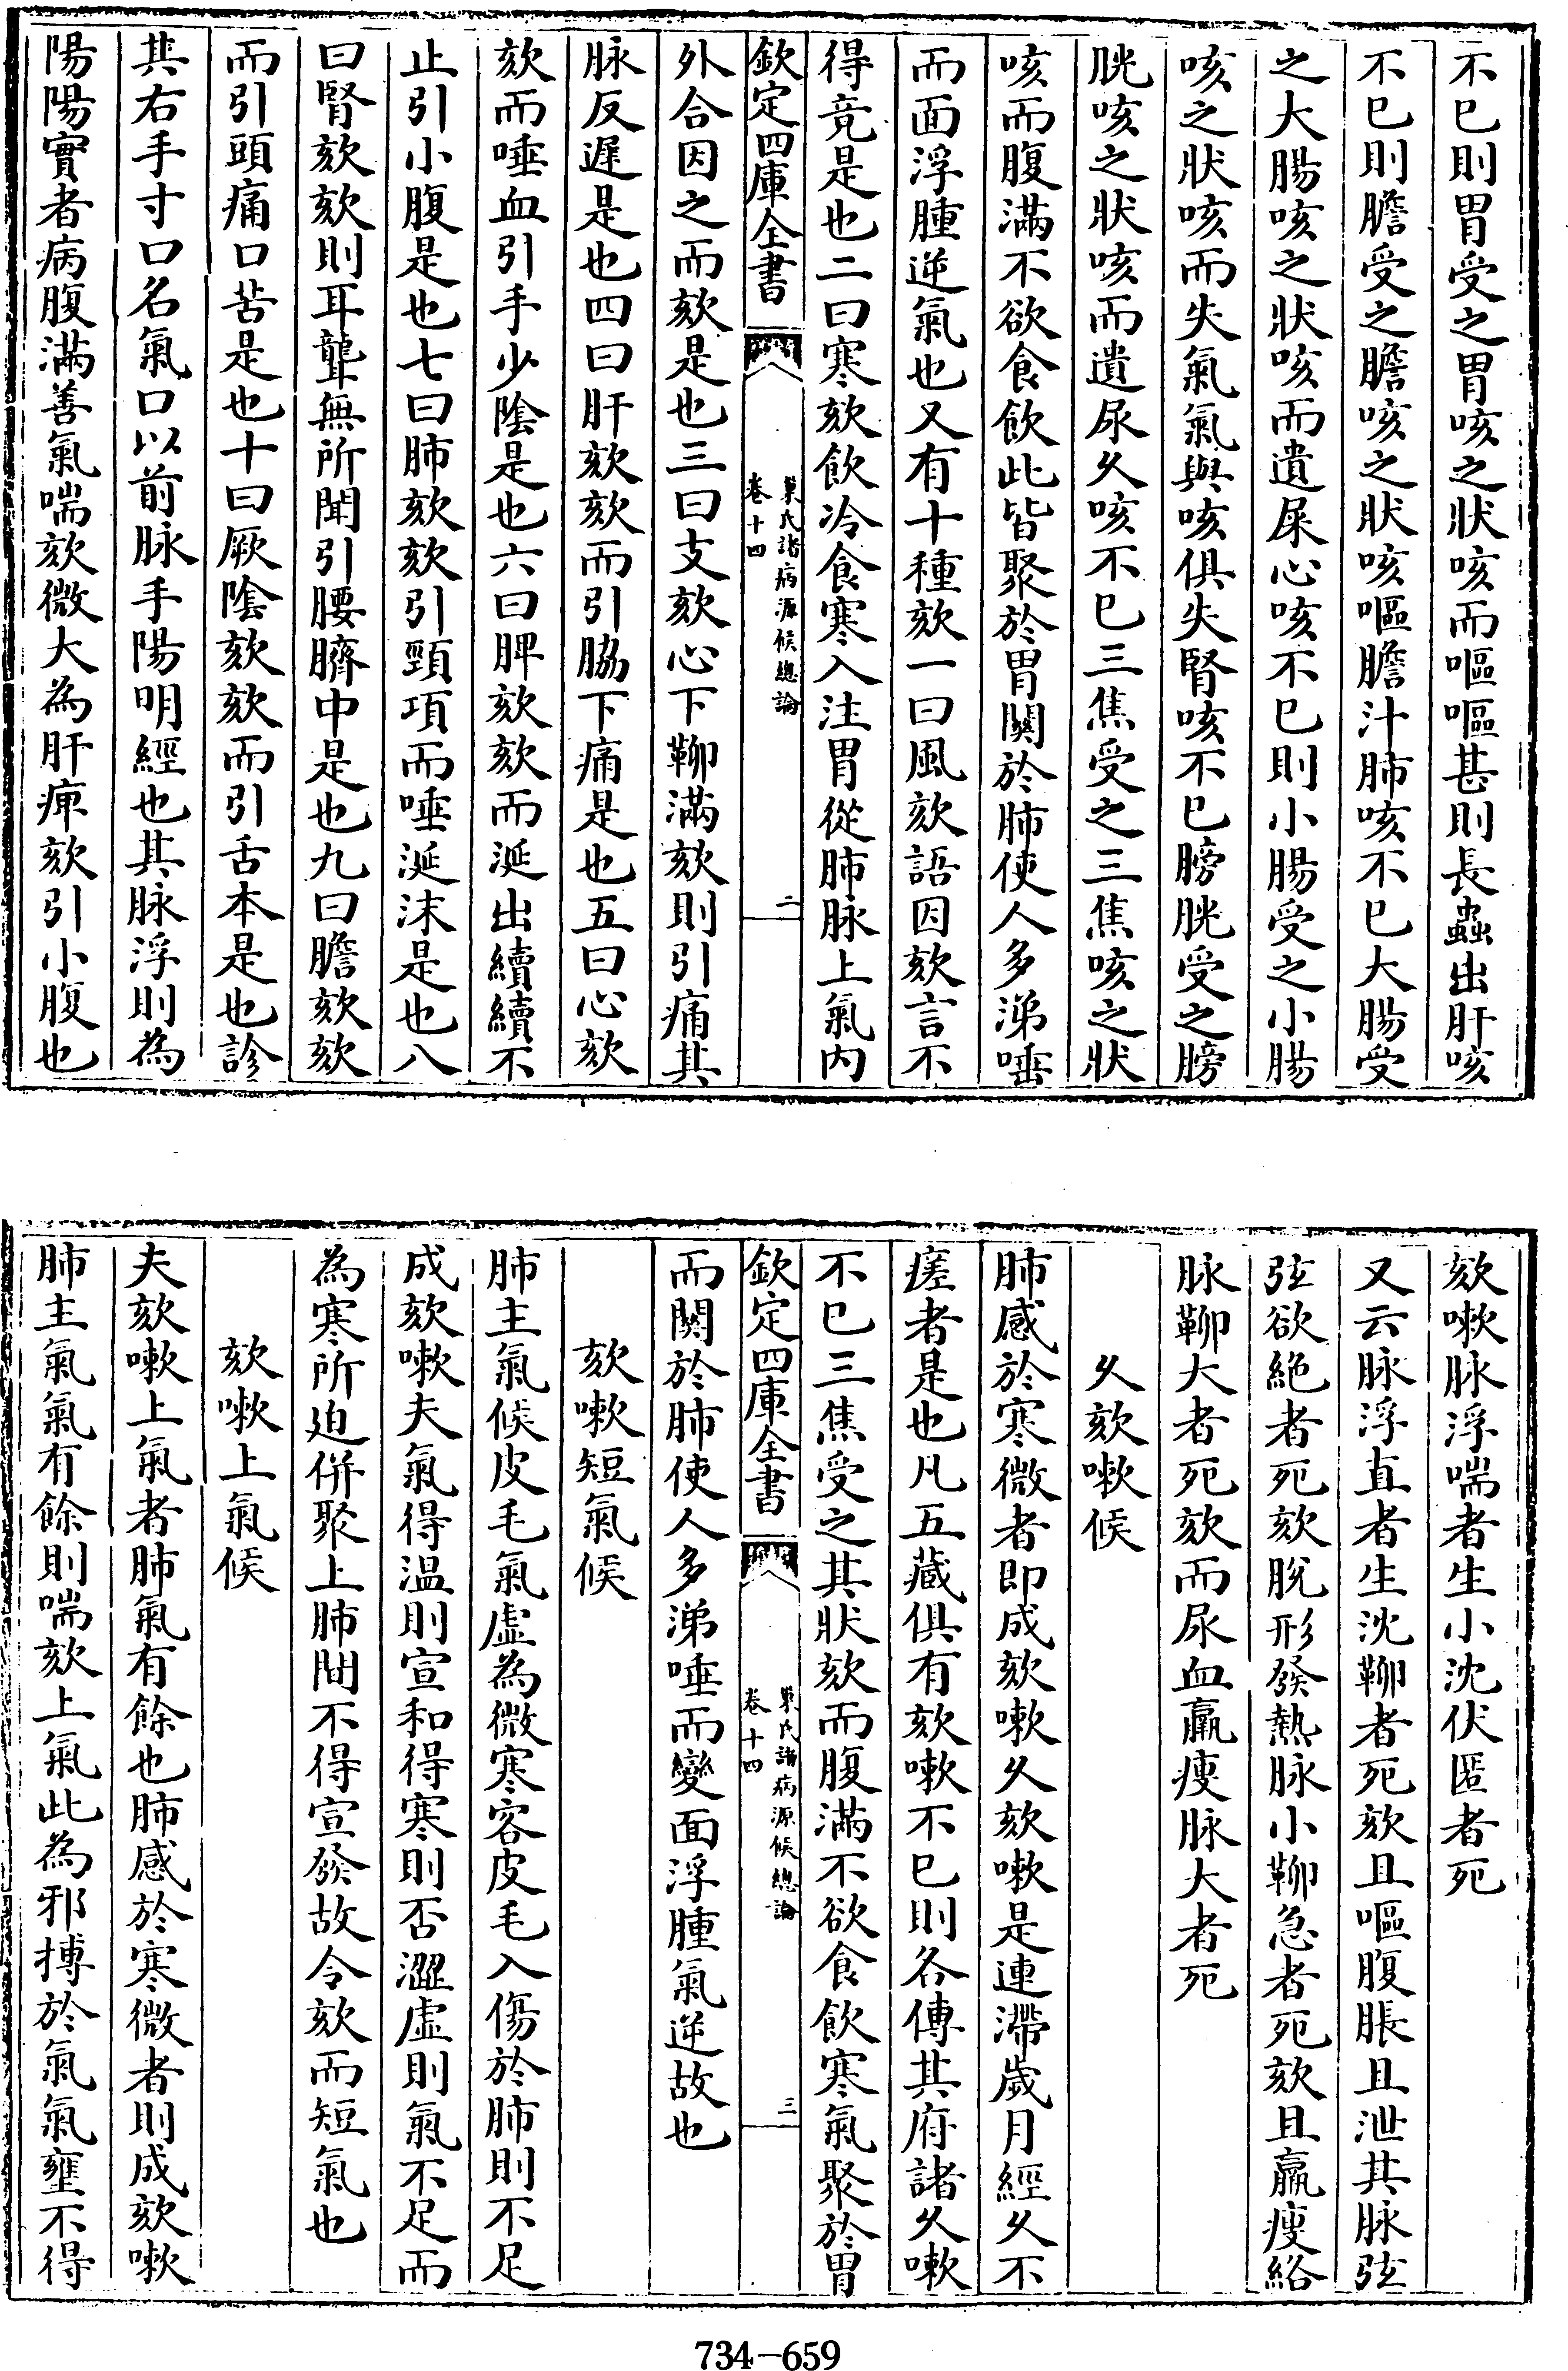 不已則胃受之胃咳之狀咳而嘔嘔甚則長蟲出肝咳
不已則膽受之膽咳之狀咳嘔膽汁肺咳不已大腸受
之大腸咳之狀咳而遺屎心咳不已則小腸受之小腸
咳之狀咳而失氣氣與咳俱失腎咳不已膀胱受之膀
胱咳之狀咳而遺尿久咳不已三焦受之三焦咳之狀
咳而腹滿不欲食飲此皆聚於胃關於肺使人多涕唾
而面浮腫逆氣也又有十種欬一曰風欬語因欬言不
得竟是也二曰寒欬飲冷食寒入注胃從肺脉上氣内
欽定四庫全書
巢氏諸病源候總論
卷十四
二
外合因之而欬是也三曰支欬心下鞕滿欬則引痛其
脉反遲是也四曰肝欬欬而引脇下痛是也五曰心欬
欬而唾血引手少陰是也六曰脾欬欬而涎出續續不
止引小腹是也七曰肺欬欬引頸項而唾涎沫是也八
曰腎欬欬則耳聾無所聞引腰臍中是也九曰膽欬欬
而引頭痛口苦是也十曰厥陰欬欬而引舌本是也診
其右手寸口名氣口以前脉手陽明經也其脉浮則為
陽陽實者病腹滿善氣喘欬微大為肝痺欬引小腹也
欬嗽脉浮喘者生小沈伏匿者死
又云脉浮直者生沈鞕者死欬且嘔腹脹且泄其脉弦
弦欲絶者死欬脱形發熱脉小鞕急者死欬且羸瘦絡
脉鞕大者死欬而尿血羸瘦脉大者死
久欬嗽候
肺感於寒微者即成欬嗽久欬嗽是連滯歲月經久不
瘥者是也凡五藏俱有欬嗽不已則各傳其府諸久嗽
不已三焦受之其狀欬而腹滿不欲食飲寒氣聚於胃
欽定四庫全書
巢氏諸病源候總論
卷十四
三
而關於肺使人多涕唾而變面浮腫氣逆故也
欬嗽短氣候
肺主氣候皮毛氣虚為微寒客皮毛入傷於肺則不足
成欬嗽夫氣得温則宣和得寒則否澀虚則氣不足而
為寒所迫併聚上肺間不得宣發故令欬而短氣也
欬嗽上氣候
夫欬嗽上氣者肺氣有餘也肺感於寒微者則成欬嗽
肺主氣氣有餘則喘欬上氣此為邪搏於氣氣壅不得
734-659